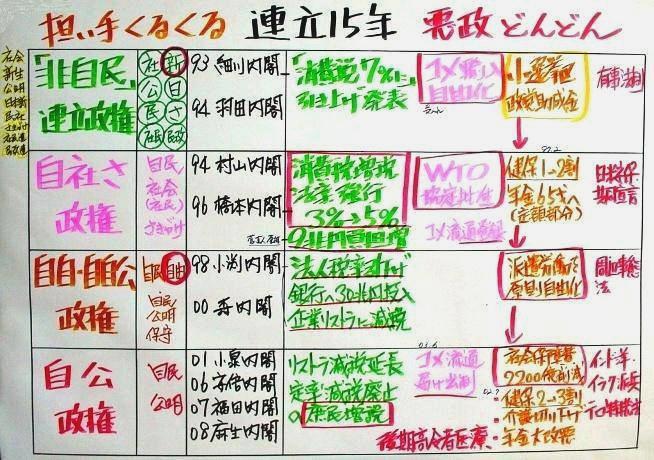 担い手くるくる 連立15年 悪政どんどん
社会
新生
公明
日本新
民社
さきがけ
社民連
民改連
「非自民」
連立政権
社 新
公 日
民 さ
社民 民改
93 細川内閣
94 羽田内閣
「消費税7%に
引き上げ」発表
コメ輸入
自由化
小選挙区
政党助成金
有事法制
自社さ
政権
自民
社会
(社民)
さきがけ
94 村山内閣
96 橋本内閣
消費税増税
法案強行
3%→5%
9兆円負担増
WTO
協定批准
コメ流通
97.9
健保1→2割
年金65歳へ
(定額部分)
日米安保
共同宣言
自自・自公
政権
自民 自由
自民
公明
保守
98 小渕内閣
00 森内閣
法人税率引下げ
銀行へ30兆円投入
企業リストラに減税
派遣労働を
原則自由化
周辺事態
法
自公
政権
自民
公明
01 小泉内閣
06 安倍内閣
07 福田内閣
08 麻生内閣
リストラ減税延長
定率減税廃止
の庶民増税
コメ流通
届け出制
社会保障費
2200億削減
・健保2→3割
・介護切り下げ
・年金大改悪
後期高令者医療
インド洋・
イラク派兵
テロ特措法